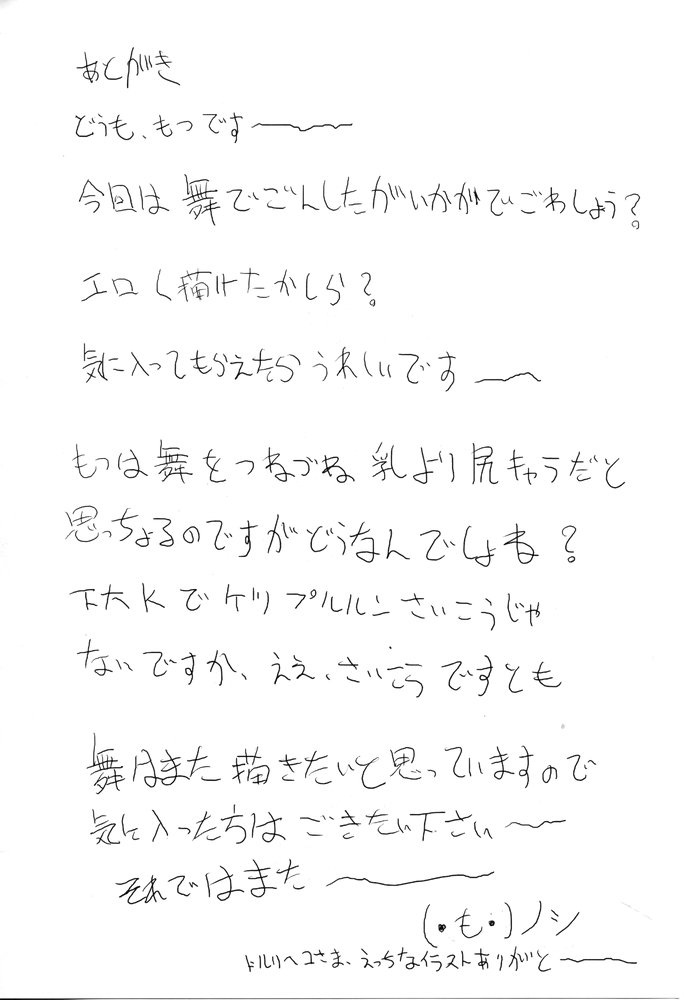 あとがき
どうも、もつです〜
今回は舞でごんしたがいかがでごわしょう?
エロく描けたかしら?
気に入ってもらえたらうれしいです〜
もつは舞をつねづね乳より尻キャラだと
思っちょるのですがどうなんでしょね?
下大Kでケツプルルンさいこうじゃ
ないですか、ええ、さいこうですとも
舞はまた描きたいと思っていますので
気に入ったらはごきたい下さい〜
それではまた〜
(・も・)ノシ
さま、えっちなイラストありがと〜